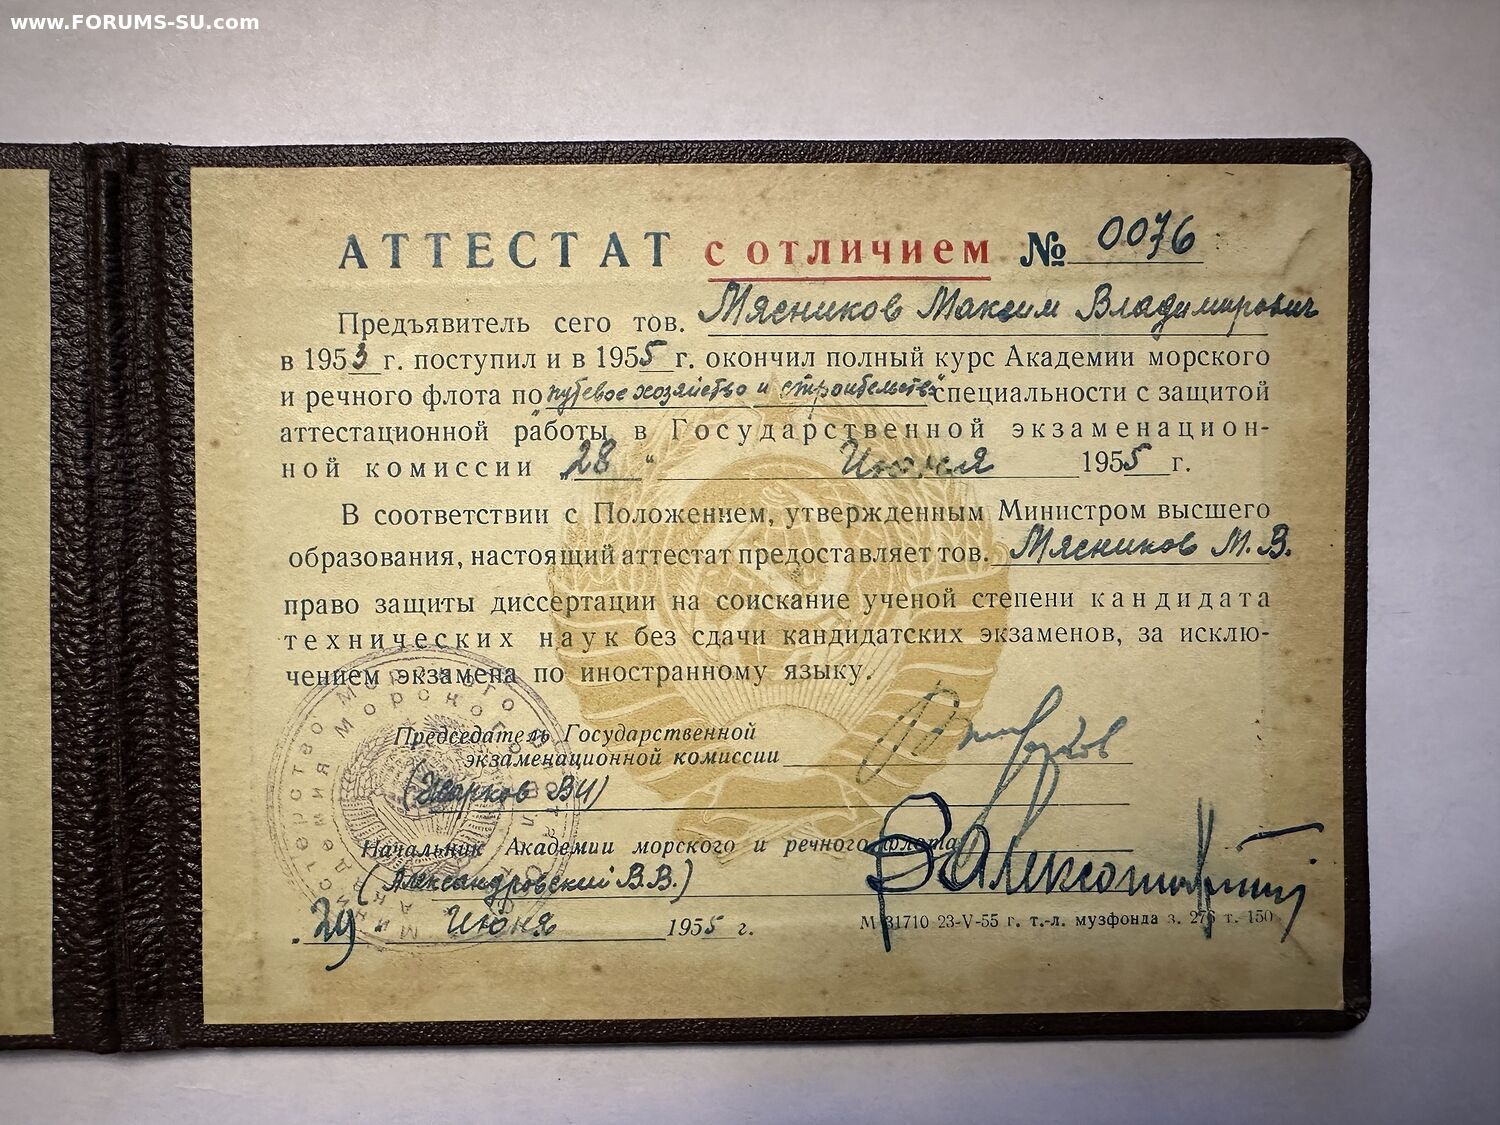 www.FORUMS-SU.com
АТТЕСТАТ с отличием № 0076
Предъявитель сего тов. Мясников Максим Владимирович
в 1953 г. поступил и в 1955 г. окончил полный курс Академии морского
и речного флота по „путевое хозяйство и строительство“ специальности с защитой
аттестационной работы в Государственной экзаменацион-
ной комиссии „28“ Июня 1955 г.
В соответствии с Положением, утвержденным Министром высшего
образования, настоящий аттестат предоставляет тов. Мясников М.В.
право защиты диссертации на соискание ученой степени кандидата
технических наук без сдачи кандидатских экзаменов, за исклю-
чением экзамена по иностранному языку.
Председатель Государственной
экзаменационной комиссии
ВИ)
Начальник Академии морского и речного флота
(Александровский В.В.)
„29“ Июня 1955 г.
М-31710 23-V-55 г. т.-л. музфонда з. 276 т. 150